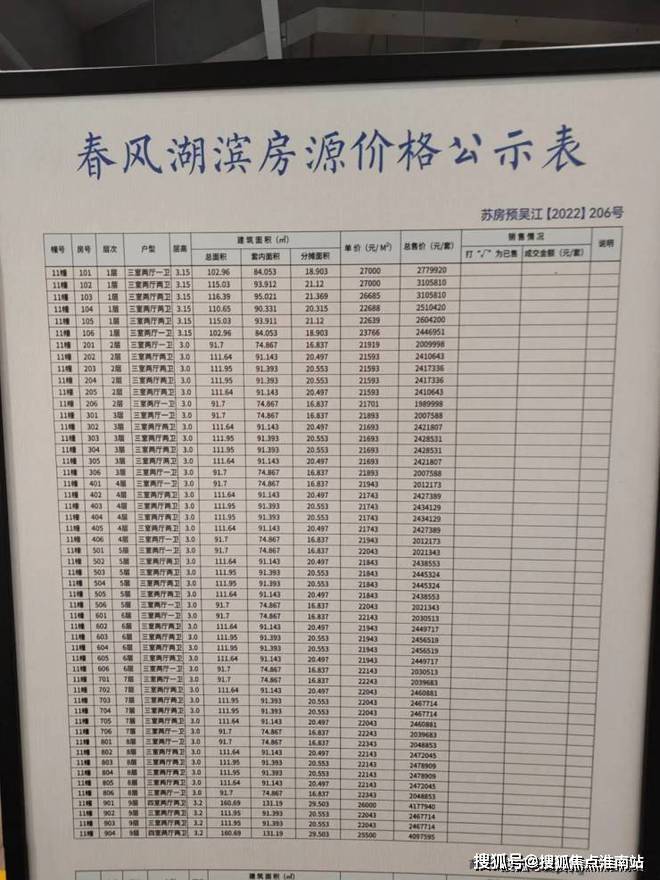 春风湖滨房源价格公示表
苏房预吴江【2022】206号
幢号 房号 层次 户型 层高 建筑面积（㎡） 单价（元/M²） 总售价（元/套） 销售情况 说明
总面积 套内面积 分摊面积 打“√”为已售 成交金额（元/套）
11幢 101 1层 三室两厅一卫 3.15 102.96 84.053 18.903 27000 2779920
11幢 102 1层 三室两厅两卫 3.15 115.03 93.912 21.12 27000 3105810
11幢 103 1层 三室两厅两卫 3.15 116.39 95.021 21.369 26685 3105810
11幢 104 1层 三室两厅两卫 3.15 110.65 90.331 20.315 22688 2510420
11幢 105 1层 三室两厅两卫 3.15 115.03 93.911 21.12 22639 2604200
11幢 106 1层 三室两厅一卫 3.15 102.96 84.053 18.903 23766 2446951
11幢 201 2层 三室两厅一卫 3.0 91.7 74.867 16.837 21919 2009998
11幢 202 2层 三室两厅两卫 3.0 111.64 91.143 20.497 21593 2410643
11幢 203 2层 三室两厅两卫 3.0 111.95 91.393 20.553 21593 2417336
11幢 204 2层 三室两厅两卫 3.0 111.95 91.393 20.553 21593 2417336
11幢 205 2层 三室两厅两卫 3.0 111.64 91.143 20.497 21593 2410643
11幢 206 2层 三室两厅一卫 3.0 91.7 74.867 16.837 21701 1989998
11幢 301 3层 三室两厅一卫 3.0 91.7 74.867 16.837 21893 2007588
11幢 302 3层 三室两厅两卫 3.0 111.64 91.143 20.497 21693 2421807
11幢 303 3层 三室两厅两卫 3.0 111.95 91.393 20.553 21693 2428531
11幢 304 3层 三室两厅两卫 3.0 111.95 91.393 20.553 21693 2428531
11幢 305 3层 三室两厅两卫 3.0 111.64 91.143 20.497 21693 2421807
11幢 306 3层 三室两厅一卫 3.0 91.7 74.867 16.837 21893 2007588
11幢 401 4层 三室两厅一卫 3.0 91.7 74.867 16.837 21943 2012173
11幢 402 4层 三室两厅两卫 3.0 111.64 91.143 20.497 21743 2427389
11幢 403 4层 三室两厅两卫 3.0 111.95 91.393 20.553 21743 2434129
11幢 404 4层 三室两厅两卫 3.0 111.95 91.393 20.553 21743 2434129
11幢 405 4层 三室两厅两卫 3.0 111.64 91.143 20.497 21743 2427389
11幢 406 4层 三室两厅一卫 3.0 91.7 74.867 16.837 21943 2012173
11幢 501 5层 三室两厅一卫 3.0 91.7 74.867 16.837 22043 2021343
11幢 502 5层 三室两厅两卫 3.0 111.64 91.143 20.497 21843 2438553
11幢 503 5层 三室两厅两卫 3.0 111.95 91.393 20.553 21843 2445324
11幢 504 5层 三室两厅两卫 3.0 111.95 91.393 20.553 21843 2445324
11幢 505 5层 三室两厅两卫 3.0 111.64 91.143 20.497 21843 2438553
11幢 506 5层 三室两厅一卫 3.0 91.7 74.867 16.837 22043 2021343
11幢 601 6层 三室两厅一卫 3.0 91.7 74.867 16.837 22143 2030513
11幢 602 6层 三室两厅两卫 3.0 111.64 91.143 20.497 21943 2449717
11幢 603 6层 三室两厅两卫 3.0 111.95 91.393 20.553 21943 2456519
11幢 604 6层 三室两厅两卫 3.0 111.95 91.393 20.553 21943 2456519
11幢 605 6层 三室两厅两卫 3.0 111.64 91.143 20.497 21943 2449717
11幢 606 6层 三室两厅一卫 3.0 91.7 74.867 16.837 22143 2030513
11幢 701 7层 三室两厅一卫 3.0 91.7 74.867 16.837 22243 2039683
11幢 702 7层 三室两厅两卫 3.0 111.64 91.143 20.497 22043 2460881
11幢 703 7层 三室两厅两卫 3.0 111.95 91.393 20.553 22043 2467714
11幢 704 7层 三室两厅两卫 3.0 111.95 91.393 20.553 22043 2467714
11幢 705 7层 三室两厅两卫 3.0 111.64 91.143 20.497 22043 2460881
11幢 706 7层 三室两厅一卫 3.0 91.7 74.867 16.837 22243 2039683
11幢 801 8层 三室两厅一卫 3.0 91.7 74.867 16.837 22343 2048853
11幢 802 8层 三室两厅两卫 3.0 111.64 91.143 20.497 22143 2472045
11幢 803 8层 三室两厅两卫 3.0 111.95 91.393 20.553 22143 2478909
11幢 804 8层 三室两厅两卫 3.0 111.95 91.393 20.553 22143 2478909
11幢 805 8层 三室两厅两卫 3.0 111.64 91.143 20.497 22143 2472045
11幢 806 8层 三室两厅一卫 3.0 91.7 74.867 16.837 22343 2048853
11幢 901 9层 四室两厅两卫 3.2 160.69 131.19 29.503 26000 4177940
11幢 902 9层 三室两厅两卫 3.2 111.95 91.393 20.553 22043 2467714
11幢 903 9层 三室两厅两卫 3.2 111.95 91.393 20.553 22043 2467714
11幢 904 9层 四室两厅两卫 3.2 160.69 131.19 29.503 25500 4097595
建筑面积（㎡）
搜狐号@搜狐焦点淮南站